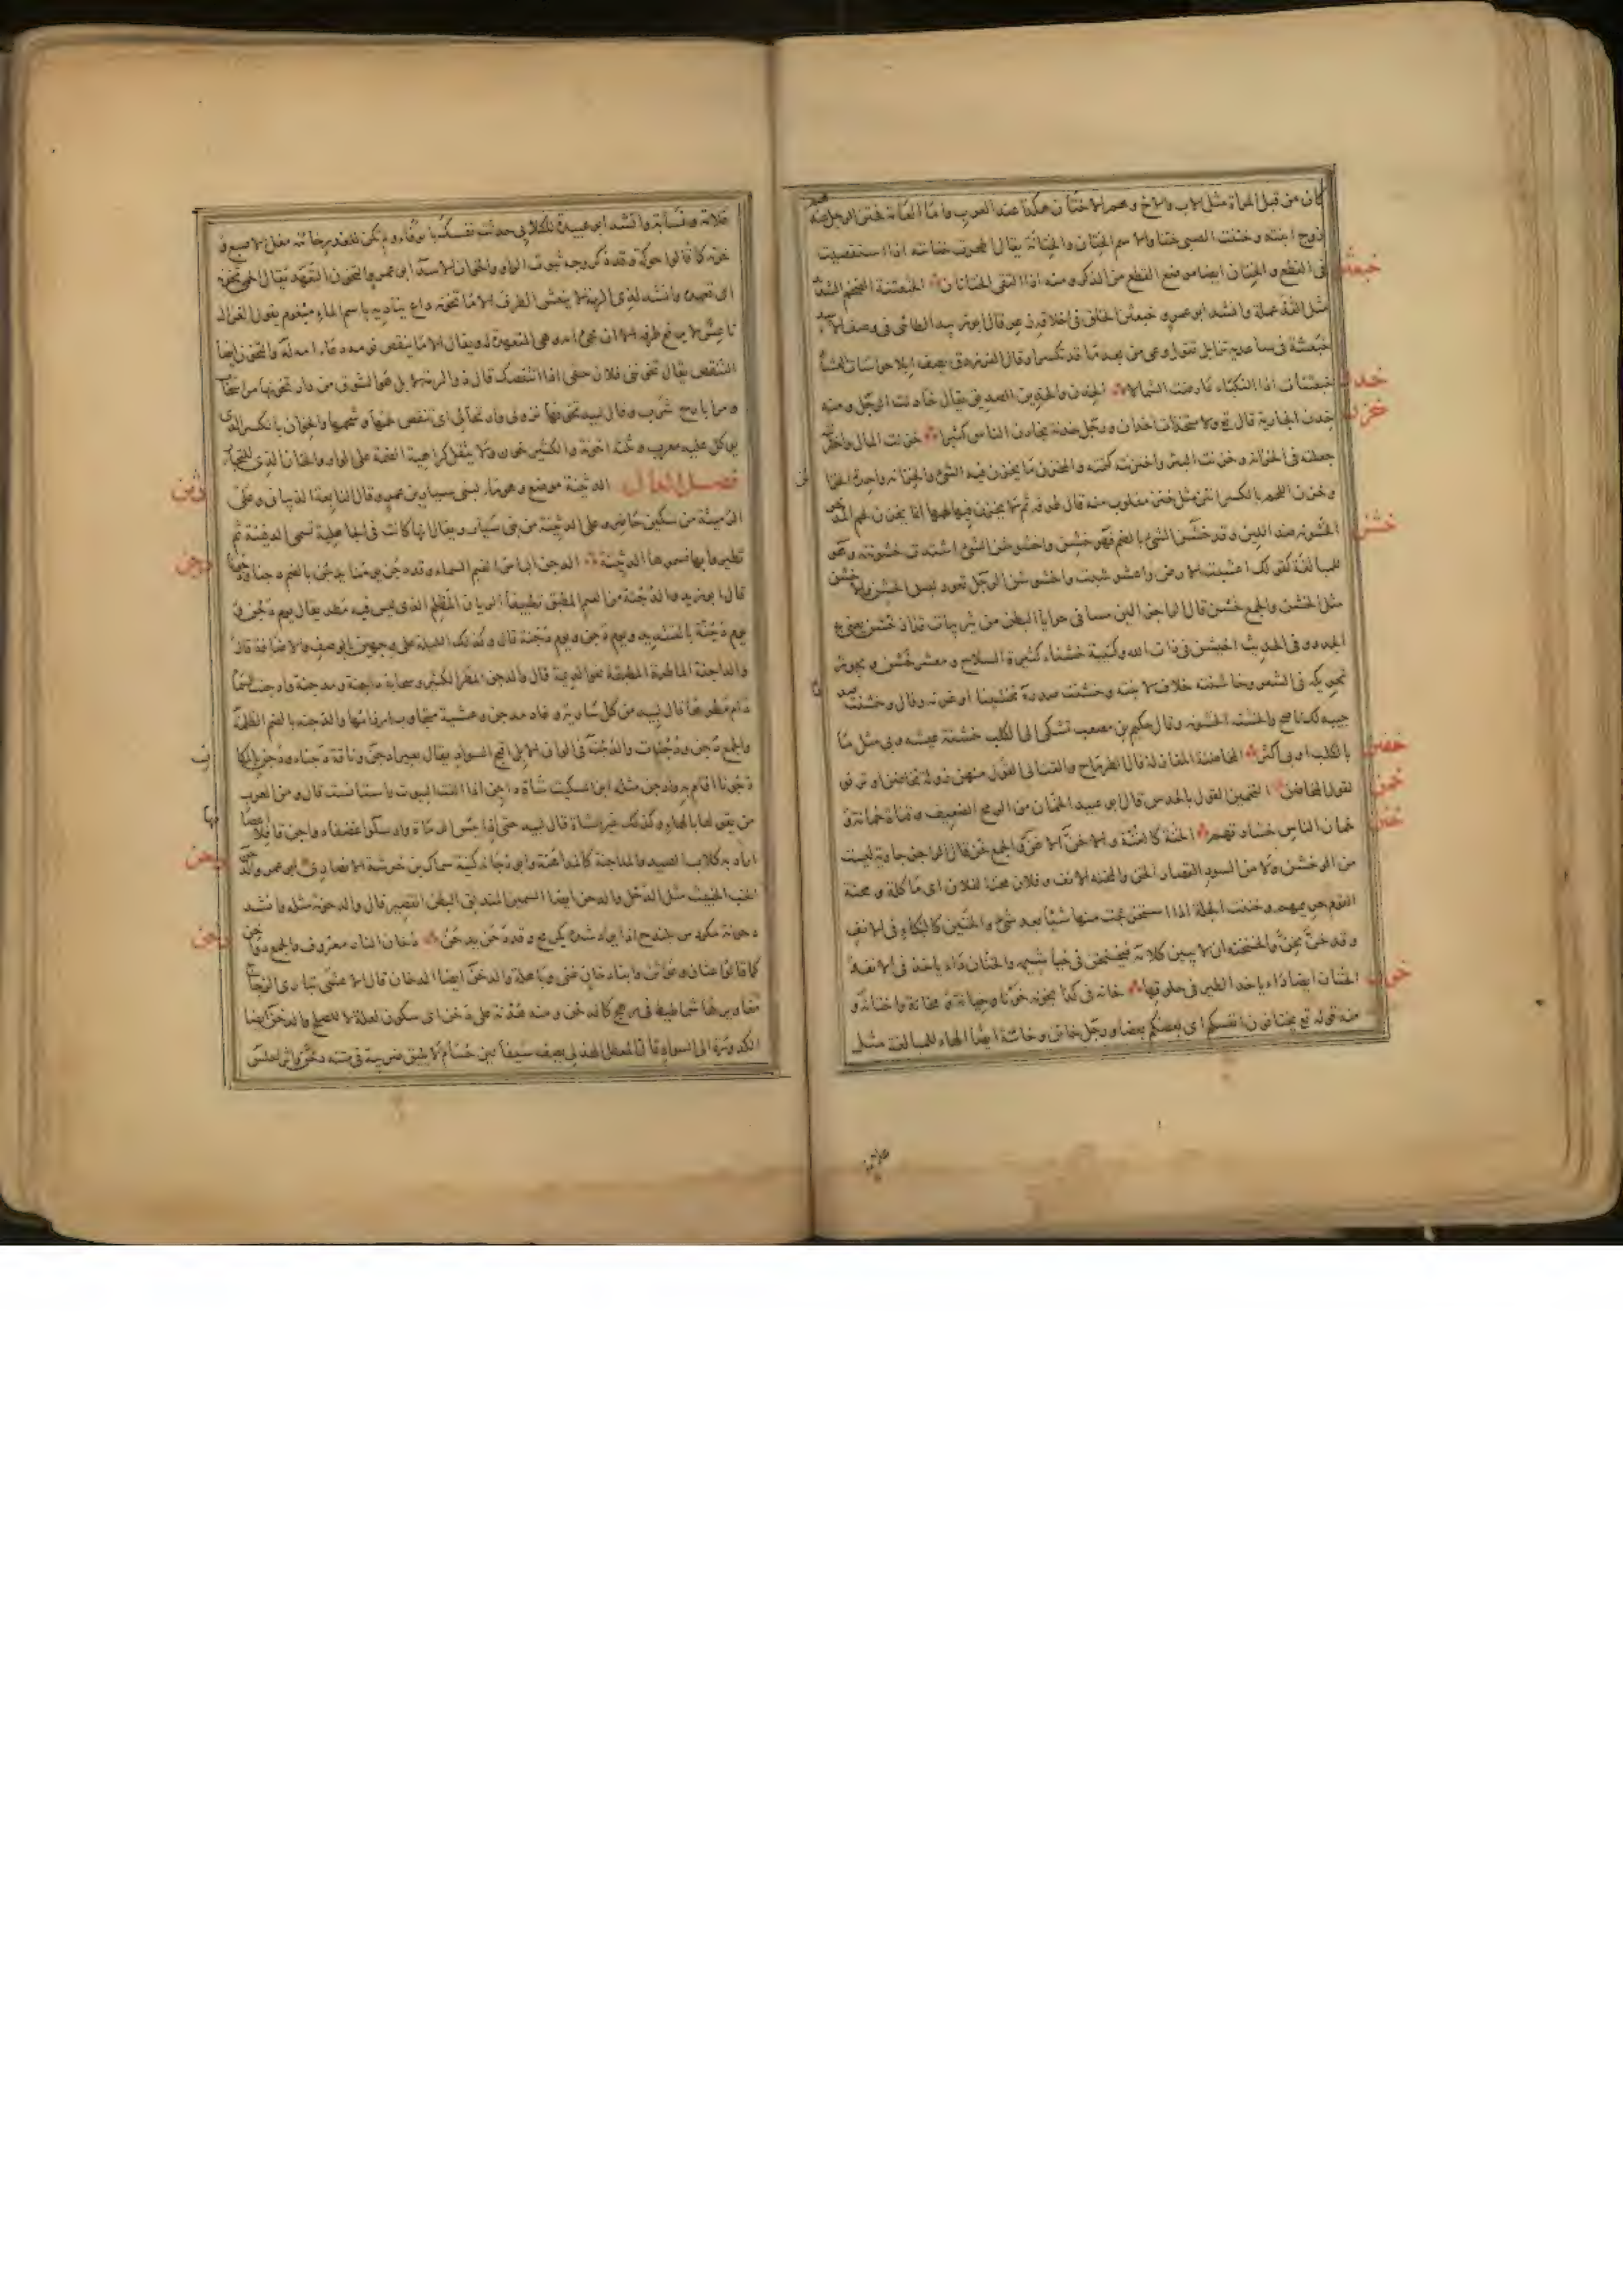 كان من قبل المراة مثل الاب والاخ وهم الاختان هكذا عند العرب واما العامة فختن الرجل عندهم
زوج ابنته وختنت الصبى ختنا والاسم الختان والختانة يقال اطحرت ختانته اذا استقصيت
خبعثن
فى القطع والختان ايضا موضع القطع من الذكر ومنه اذا التقى الختانان الخبعثنة الضخم الشديد
مثل القذعملة وانشد ابو عمرو خبعثن الخلق فى اخلاقه زعر قال ابو زبيد الطائى فى وصف الاسد
خبعثنة فى ساعديه تزايل تقول وعى من بعد ما قد تكسرا وقال الفرزدق يصف ابلا حواسات العشاء
خدن
خبعثنات اذا النكباء عارضت الشمالا الخدن والخدين الصديق يقال خادنت الرجل ومنه
خزن
خدن الجارية قال تع ولا متخذات اخدان ورجل خدنة يخادن الناس كثيرا خزنت المال واختزنته
جعلته فى الخزانة وخزنت السر واختزنته كتمته والمخزن ما يخزن فيه الشئ والخزانة واحدة الخزائن
وخزن اللحم بالكسر انتن مثل خنز مقلوب منه قال طرفة ثم لا يخزن فينا لحمها انما يخزن لحم المدخر
خشن
الخشونة ضد اللين وقد خشن الشئ بالضم فهو خشن واخشوشن الشئ اشتدت خشونته وهو
للمبالغة كقولك اعشبت الارض واعشوشبت واخشوشن الرجل تعود لبس الخشن والاخشن
مثل الخشن والجمع خشن قال الراجز
الجدد وفى الحديث اخيشن فى ذات الله وكتيبة خشناء كثيرة السلاح ومعشر خشن ويجوز
تحريكه فى الشعر وخاشنته خلاف لاينته وخشنت صدره تخشينا اوغرته وقال وخشنت صدرا
جيبه لك ناصح والخشنة الخشونة وقال حكيم بن مصعب تشكى الى الكلب خشنة عيشه وبى مثل ما
خضن
بالكلب او بى اكثر المخاضنة المغازلة قال الطرماح والقت الى القول منهن زولة تخاضن او ترنو
خمن
لقول المخاضن التخمين القول بالحدس قال ابو عبيد الخمان من الرمح الضعيف وقناة خمانة و
خنن
خمان الناس خشارتهم الخنة كالغنة والاخن الاغن والجمع خن قال الراجز جارية ليست
من الوخشن ولا من السود القصار الخن والمخنة الانف وفلان مخنة لفلان اى ماكلة ومخنة
القوم حريمهم وخننت الجلة اذا استخرجت منها شيئا بعد شئ والخنين كالبكاء فى الانف
وقد خن يخن والخنخنة ان لا يبين كلامه فيخنخن فى خياشيمه والخنان داء ياخذ فى الانف
خون
الخنان ايضا داء ياخذ الطير فى حلوقها خانه فى كذا يخونه خونا وخيانة ومخانة واختانه و
منه قوله تع تختانون انفسكم اى بعضكم بعضا ورجل خائن وخائنة ايضا الهاء للمبالغة مثل
علامة
علامة ونسابة وانشد ابو عبيدة للكلابى حدثت نفسك بالوفاء ولم تكن للغدر خائنة مغل الاصبع و
خونة كما قالوا حوكة وقد ذكر وجه ثبوت الواو والخوان الاسد ابو عمرو التخون التعهد يقال الحمى تخونه
اى تعهده وانشد لذى الرمة لا ينعش الطرف الا ما تخونه داع يناديه باسم الماء مبغوم يقول الغزال
ناعس لا يرفع طرفه الا ان تجئ امه وهى المتعهدة له ويقال الا ما ينقص نومه دعاء امه له والتخون ايضا
التنقص يقال تخوننى فلان حقى اذا تنقصك قال ذو الرمة لا بل هو الشوق من دار تخونها مرا سحاب
ومرا بارح ترب وقال لبيد تخونها نزولى وارتحالى اى تنقص لحمها وشحمها والخوان بالكسر الذى
يوكل عليه معرب وثلثة اخونة والكثير خون ولا يثقل كراهية الضمة على الواو والخان الذى للتجار
دثن
فصل الدال الدثينة موضع وهو ماء لبنى سيار بن عمرو وقال النابغة الذبيانى وعلى
الرميثة من سكين حاضر وعلى الدثينة من بنى سيار ويقال انها كانت فى الجاهلية تسمى الدفينة ثم
دجن
تطيروا بها فسموها الدثينة الدجن الباس الغيم السماء وقد دجن يومنا يدجن بالضم دجنا ودجونا
قال ابو زيد والدجنة من الغيم المطبق تطبيقا الريان المظلم الذى ليس فيه مطر يقال يوم دجن و
يوم دجنة بالتشديد ويوم دجن ويوم دجنة قال وكذلك الليلة على وجهين بالوصف والاضافة قال
والداجنة الماطرة المطبقة نحو الديمة قال والدجن المطر الكثير وسحابة داجنة ومدجنة وادجنت السماء
دام مطرها قال لبيد من كل سارية وغاد مدجن وعشية متجاوب ارزامها والدجنة بالضم الظلمة
والجمع دجن ودجنات والدجنة فى الوان الابل اقبح السواد يقال بعير ادجن وناقة دجناء ودجن بالمكان
دجونا اقام به وادجن مثله ابن السكيت شاة داجن اذا الفت البيوت واستانست قال ومن العرب
من يقولها بالهاء وكذلك غير الشاة قال لبيد حتى اذا يئس الرماة وارسلوا غضفا دواجن قافلا اعصامها
دحن
اراد به كلاب الصيد والمداجنة كالمداهنة وابو دجانة كنية سماك بن خرشة الانصارى ابو عمرو الدحن
الخب الخبيث مثل الدحل والدحن ايضا السمين المندلق البطن القصير قال والدحونة مثله وانشد
دخن
دحونة مكردس بلندح اذا يراد شده يكرمح وقد دحن يدحن دخان النار معروف والجمع دواخن
كما قالوا عثان وعواثن وابنا دخان غنى وباهلة والدخن ايضا الدخان قال الاعشى تبارى الزجاج
مغاويرها شماطيط فى رهج كالدخن ومنه هدنة على دخن اى سكون لعلة لا للصلح والدخن ايضا
الكدورة الى السواد قال المعطل الهذلى يصف سيفا لين حسام لا يليق ضريبة فى متنه دخن واثر احلس